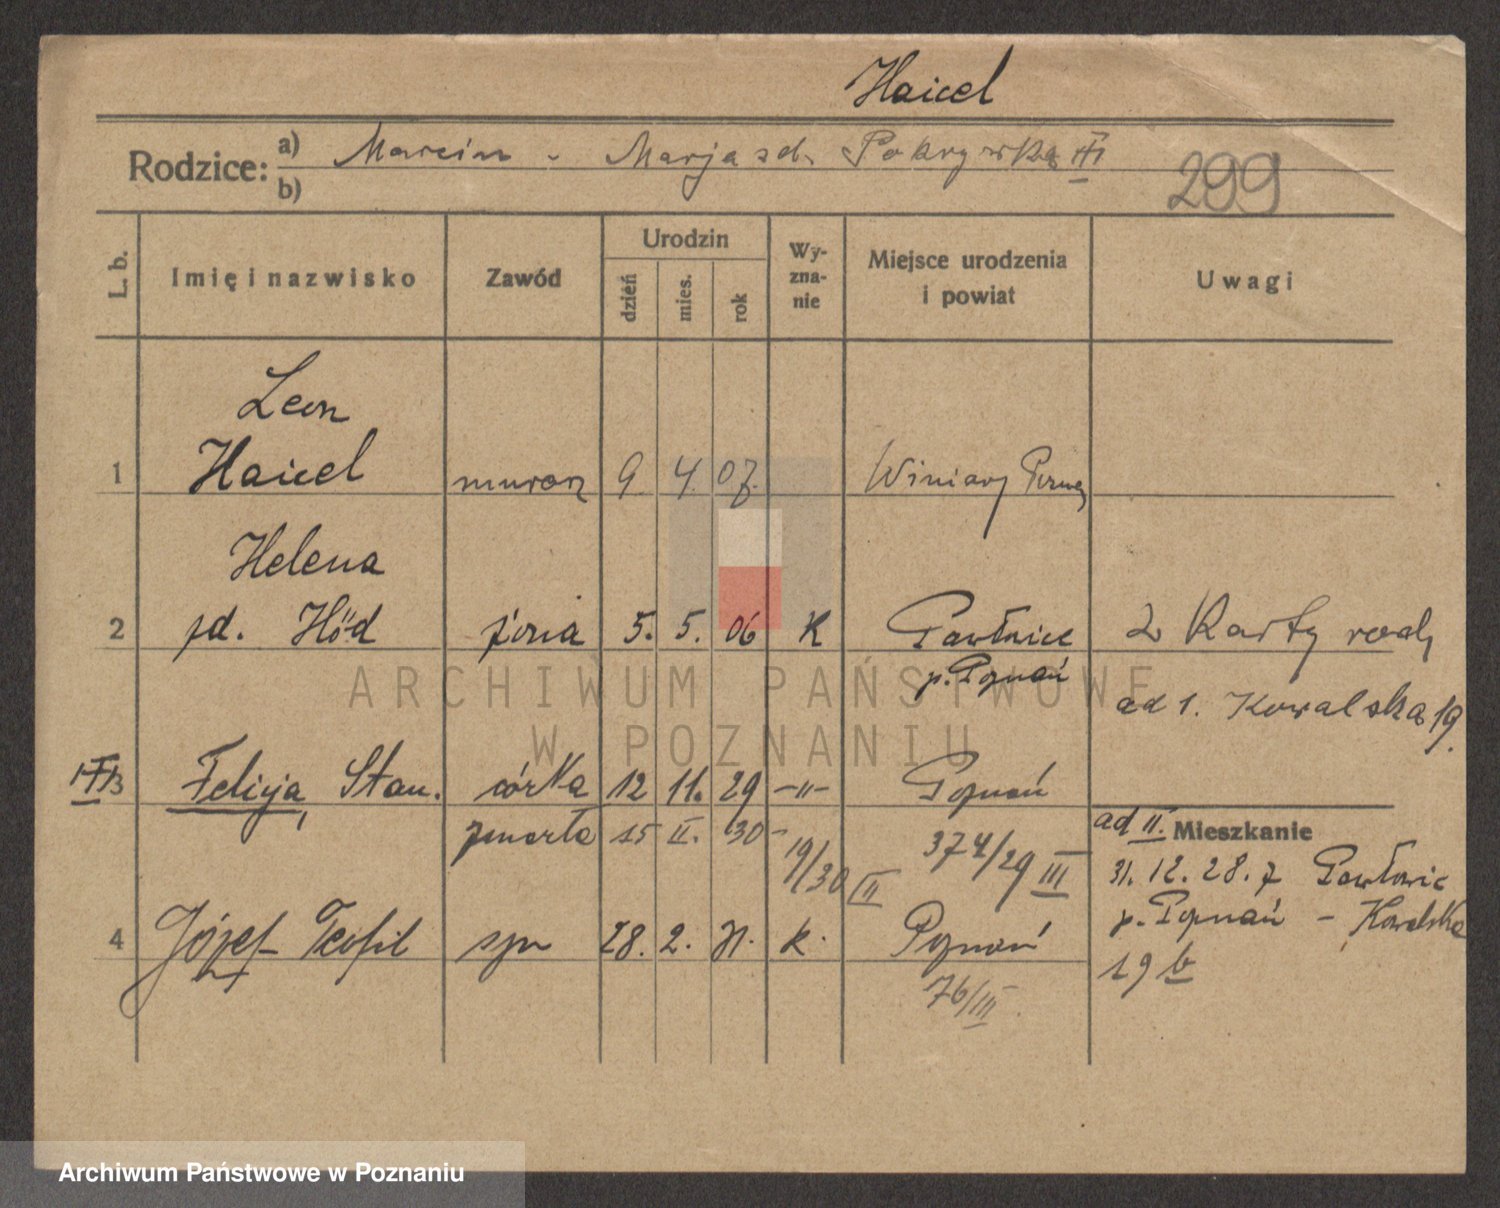 Haicel
Rodzice: a) Marcin - Marja zd. Pokrywka
b)
299
L. b.
Imię i nazwisko
Zawód
Urodzin
dzień
mies.
rok
Wy-
zna-
nie
Miejsce urodzenia
i powiat
Uwagi
Leon
1 Haicel murarz 9. 4. 07. Winiary
Helena
2 zd. Höd żona 5. 5. 06 K Pawłowice 2 Karty
p. Poznań
ad 1. Kowalska 19.
3 Felicja, Stan. córka 12 11. 29 -"- Poznań
zmarła 15 II. 30 -
19/30 II
374/29 III
ad II. Mieszkanie
31. 12. 28. z Pawłowic
p. Poznań - Kowalska
19 b
4 Józef Teofil syn 28. 2. 31. k. Poznań
76/III
ARCHIWUM PAŃSTWOWE
W POZNANIU
Archiwum Państwowe w Poznaniu